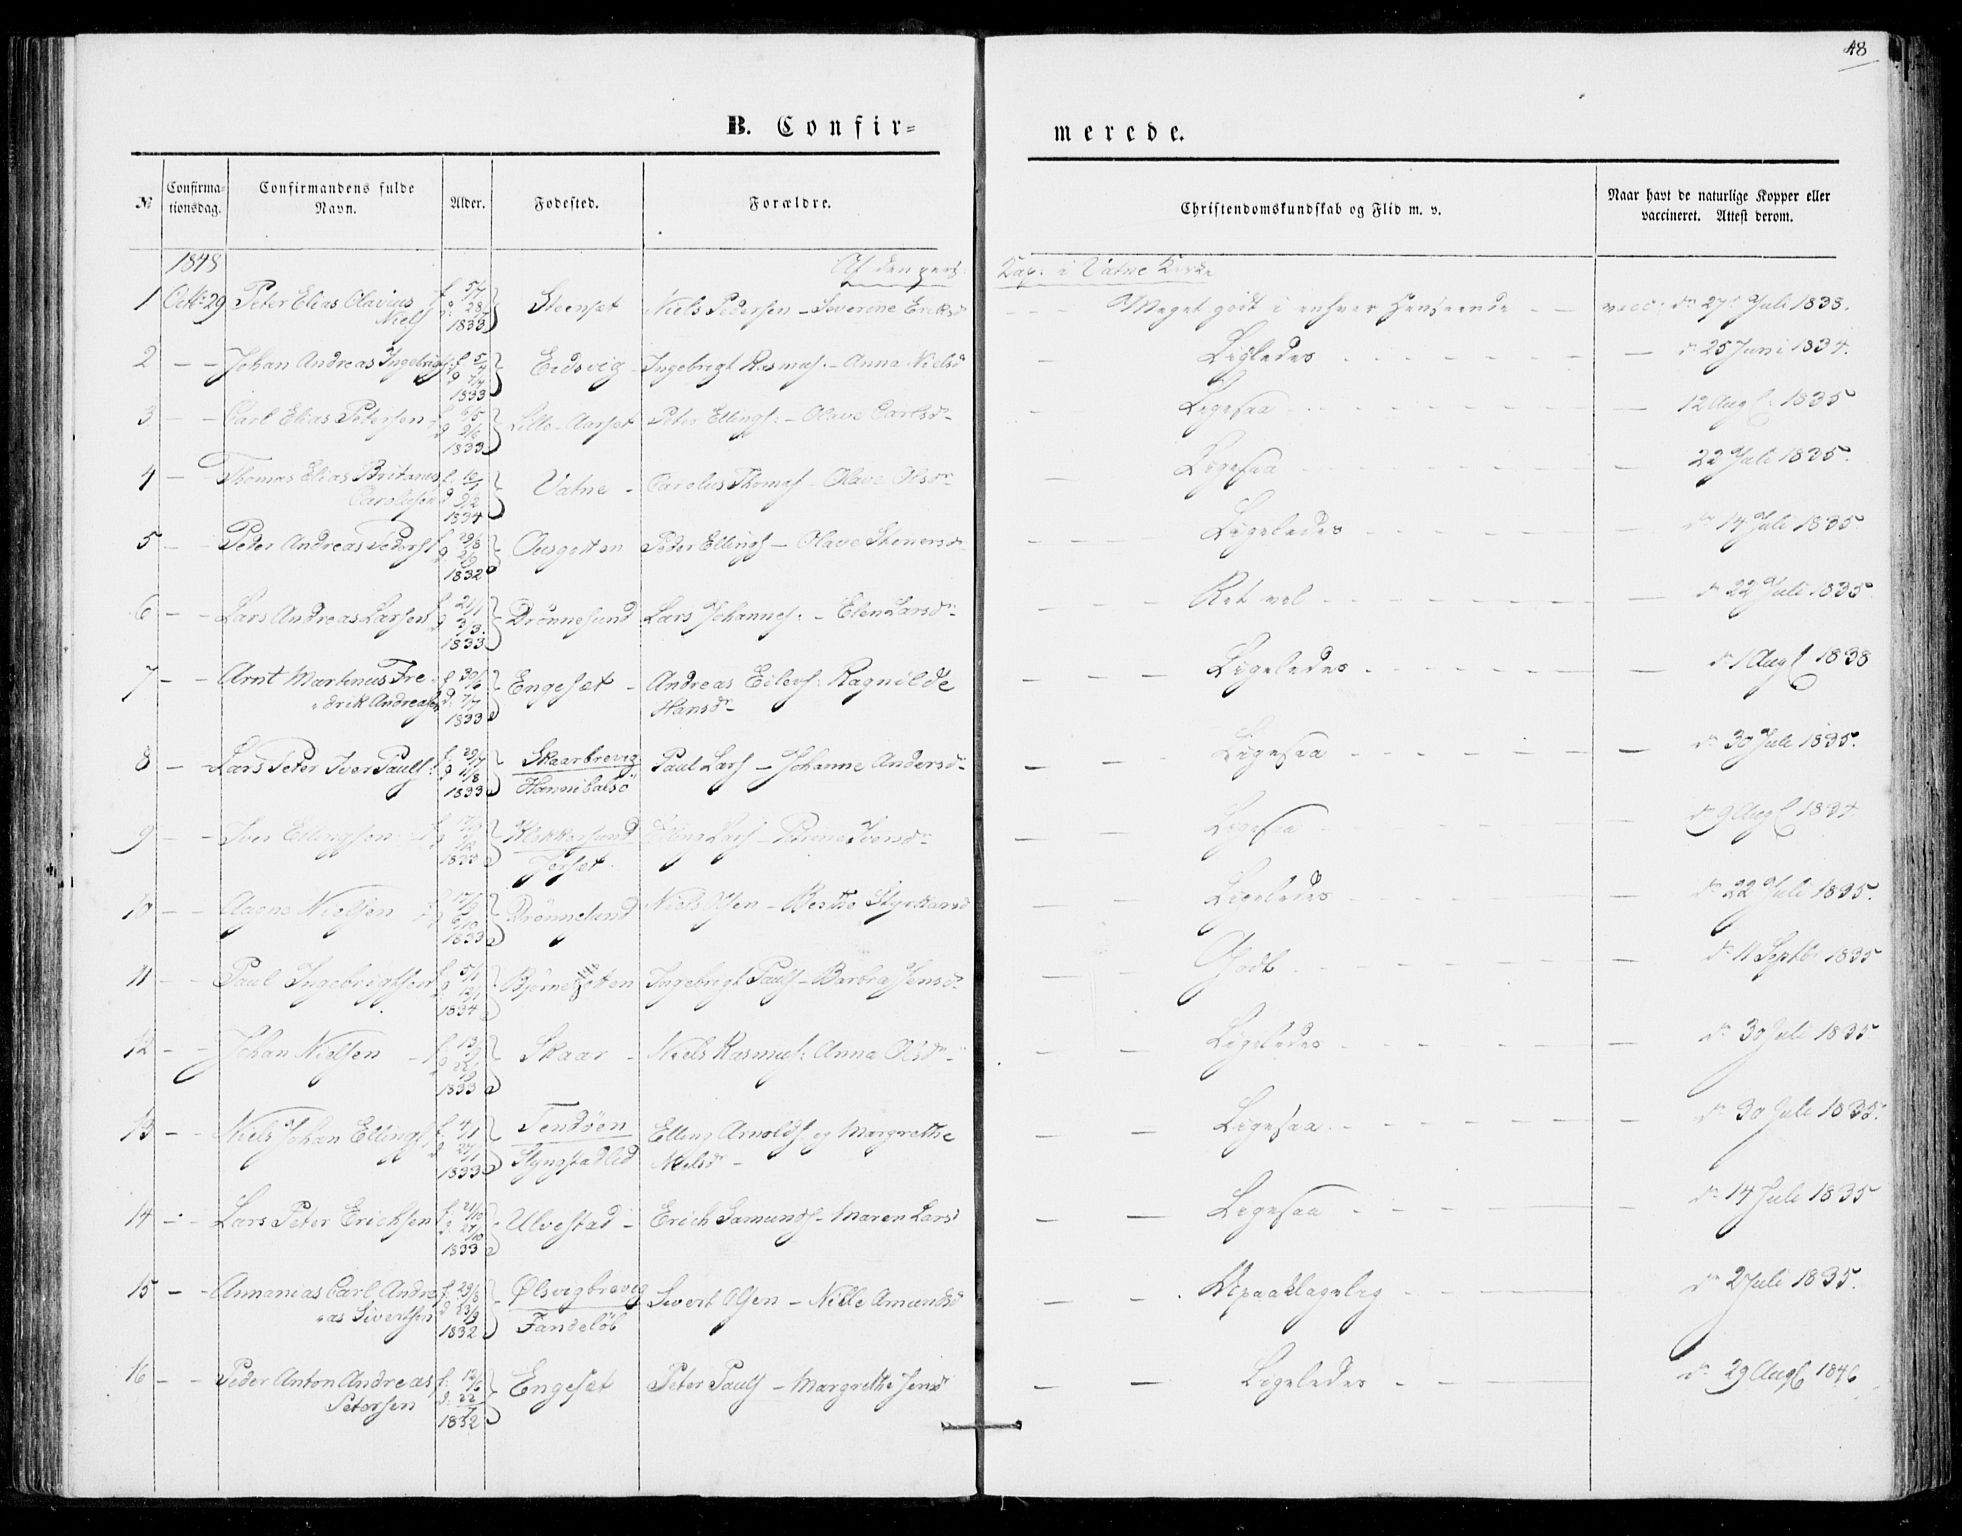 48
B. Confir=
merede.
№ Confirmationsdag. Confirmandens fulde Navn. Alder. Fødested. Forældre. Christendomskundskab og Flid m. v. Naar havt de naturlige Kopper eller vaccineret. Attest derom.
1848 Af den pers: Kap: i Vatne Kirke
1 Octb: 29 Peter Elias Olavius Niels f 5/7 d: 28/ 1833 Steensæt Niels Pedersen - Severine Ericksd Meget godt i enhver Henseende vacc: dn 27 Juli 1833.
2 - - Johan Andreas Ingebrigts f 5/4 d 7/4 1833 Eedsvig Ingebrigt Rasmus: - Anna Nielsd Ligeledes dn 25 Juni 1834.
3 - - Carl Elias Petersen f 6/5 d 9/6 1833 Lille-Aarsæt Peter Ellings: - Olave Carlsdr Ligesaa 12 Augs: 1835
4 - Thomas Elias Britanus Carolusen f 16/1 d 9/2 1834 Vatne - Carolus Thomas - Olave Olsdr Ligesaa 22 Juli 1835.
5 - Peder Andreas Peders f 29/8 d 2/9 1832 Peder Ellings - Olave Stenersdr Ligeledes dn 14 Juli 1835
6 - - Lars Andreas Larsen f 21/1 d 3/3 1833 Drønnesund Lars Johannes: - Elen Larsdr Ret vel dn 22 Juli 1835
7 - - Arnt Martinus Fredrik Andreasen f 30/6 d: 7/7 1833 Engesæt - Andreas Eilers: Ragnilde Hansdr Ligeledes dn 1 Augs 1838
8 - Lars Peter Iver Pauls: f 29/7 d 11/8 1833 Skaarbrevig Hannibalsö Paul Lars - Johanne Andersdr Ligesaa dn 30 Juli 1835.
9 - - Iver Ellingsen Klokkersund Jørsæt Elling Lars - Iversdr Ligesaa dn 9 Augs 1834
10 - - Aagene Nielsen f 17/9 d 6/10 1833 Drønnesund Niels Olsen - Berthe Styrkarsd Ligeledes dn 22 Juli 1835.
11 - - Paul Ingebrigtsen f 5/1 d 12/1 1834 Ingebrigt Pauls - Barbra Jensdr Godt dn 11 Septb: 1835
12 - - Johan Nielsen f 13/9 d 22/9 1833 Skaar - Niels Rasmus: Anna Olsdr - Ligeledes dn 30 Juli 1835
13 - - Niels Johan Ellings f 4/1 d 27/1 1833 Tendøen Slyngstadlid Elling Arnolds og Margrethe Nielsdr - Ligesaa dn 30 Juli 1835.
14 - - Lars Peter Ericksen f: 21/10 d: 27/10 1833 Ulvestad - Erich Samunds - Maren Larsd Ligesaa dn 14 Juli 1835
15 - - Annanias Carl Andreas Sivertsen f 29/8 d 23/9 1832 Ølsvigbrevig Fandeløb Sivert Olsen - Nille Amundsd Upaaklagelig dn 2 Juli 1835.
16 - - Peder Anton Andreas Petersen f: 12/6 d: 22/7 1832 Engesæt Peter Pauls - Margrethe Jensd Ligeledes dn 29 Augs 1846